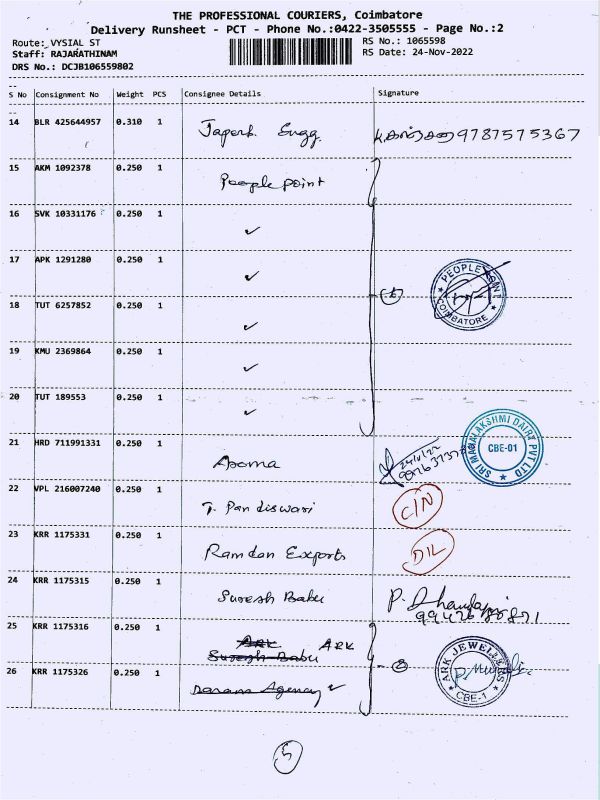 THE PROFESSIONAL COURIERS, Coimbatore
Delivery Runsheet - PCT - Phone No.:0422-3505555 - Page No.:2
Route: VYSIAL ST
Staff: RAJARATHINAM
DRS No.: DCJB106559802
RS No.: 1065598
RS Date: 24-Nov-2022
S No Consignment No Weight PCS Consignee Details Signature
14 BLR 425644957 0.310 1 Engg. 9787575367
15 AKM 1092378 0.250 1 People point
16 SVK 10331176 0.250 1 ✓
17 APK 1291280 0.250 1 ✓
PEOPLE POINT
COIMBATORE
18 TUT 6257852 0.250 1 ✓
19 KMU 2369864 0.250 1 ✓
20 TUT 189553 0.250 1 ✓
21 HRD 711991331 0.250 1
SRI MAHALAKSHMI DAIRY PVT LTD
CBE-01
22 VPL 216007240 0.250 1 T. Pandiswari CIN
23 KRR 1175331 0.250 1 Ramdan Exports DIL
24 KRR 1175315 0.250 1 Suresh Babu P. Dhandapi
25 KRR 1175316 0.250 1 ARK ARK
Suresh Babu
26 KRR 1175326 0.250 1 Agency ✓
ARK JEWELLERS
CBE-1
5